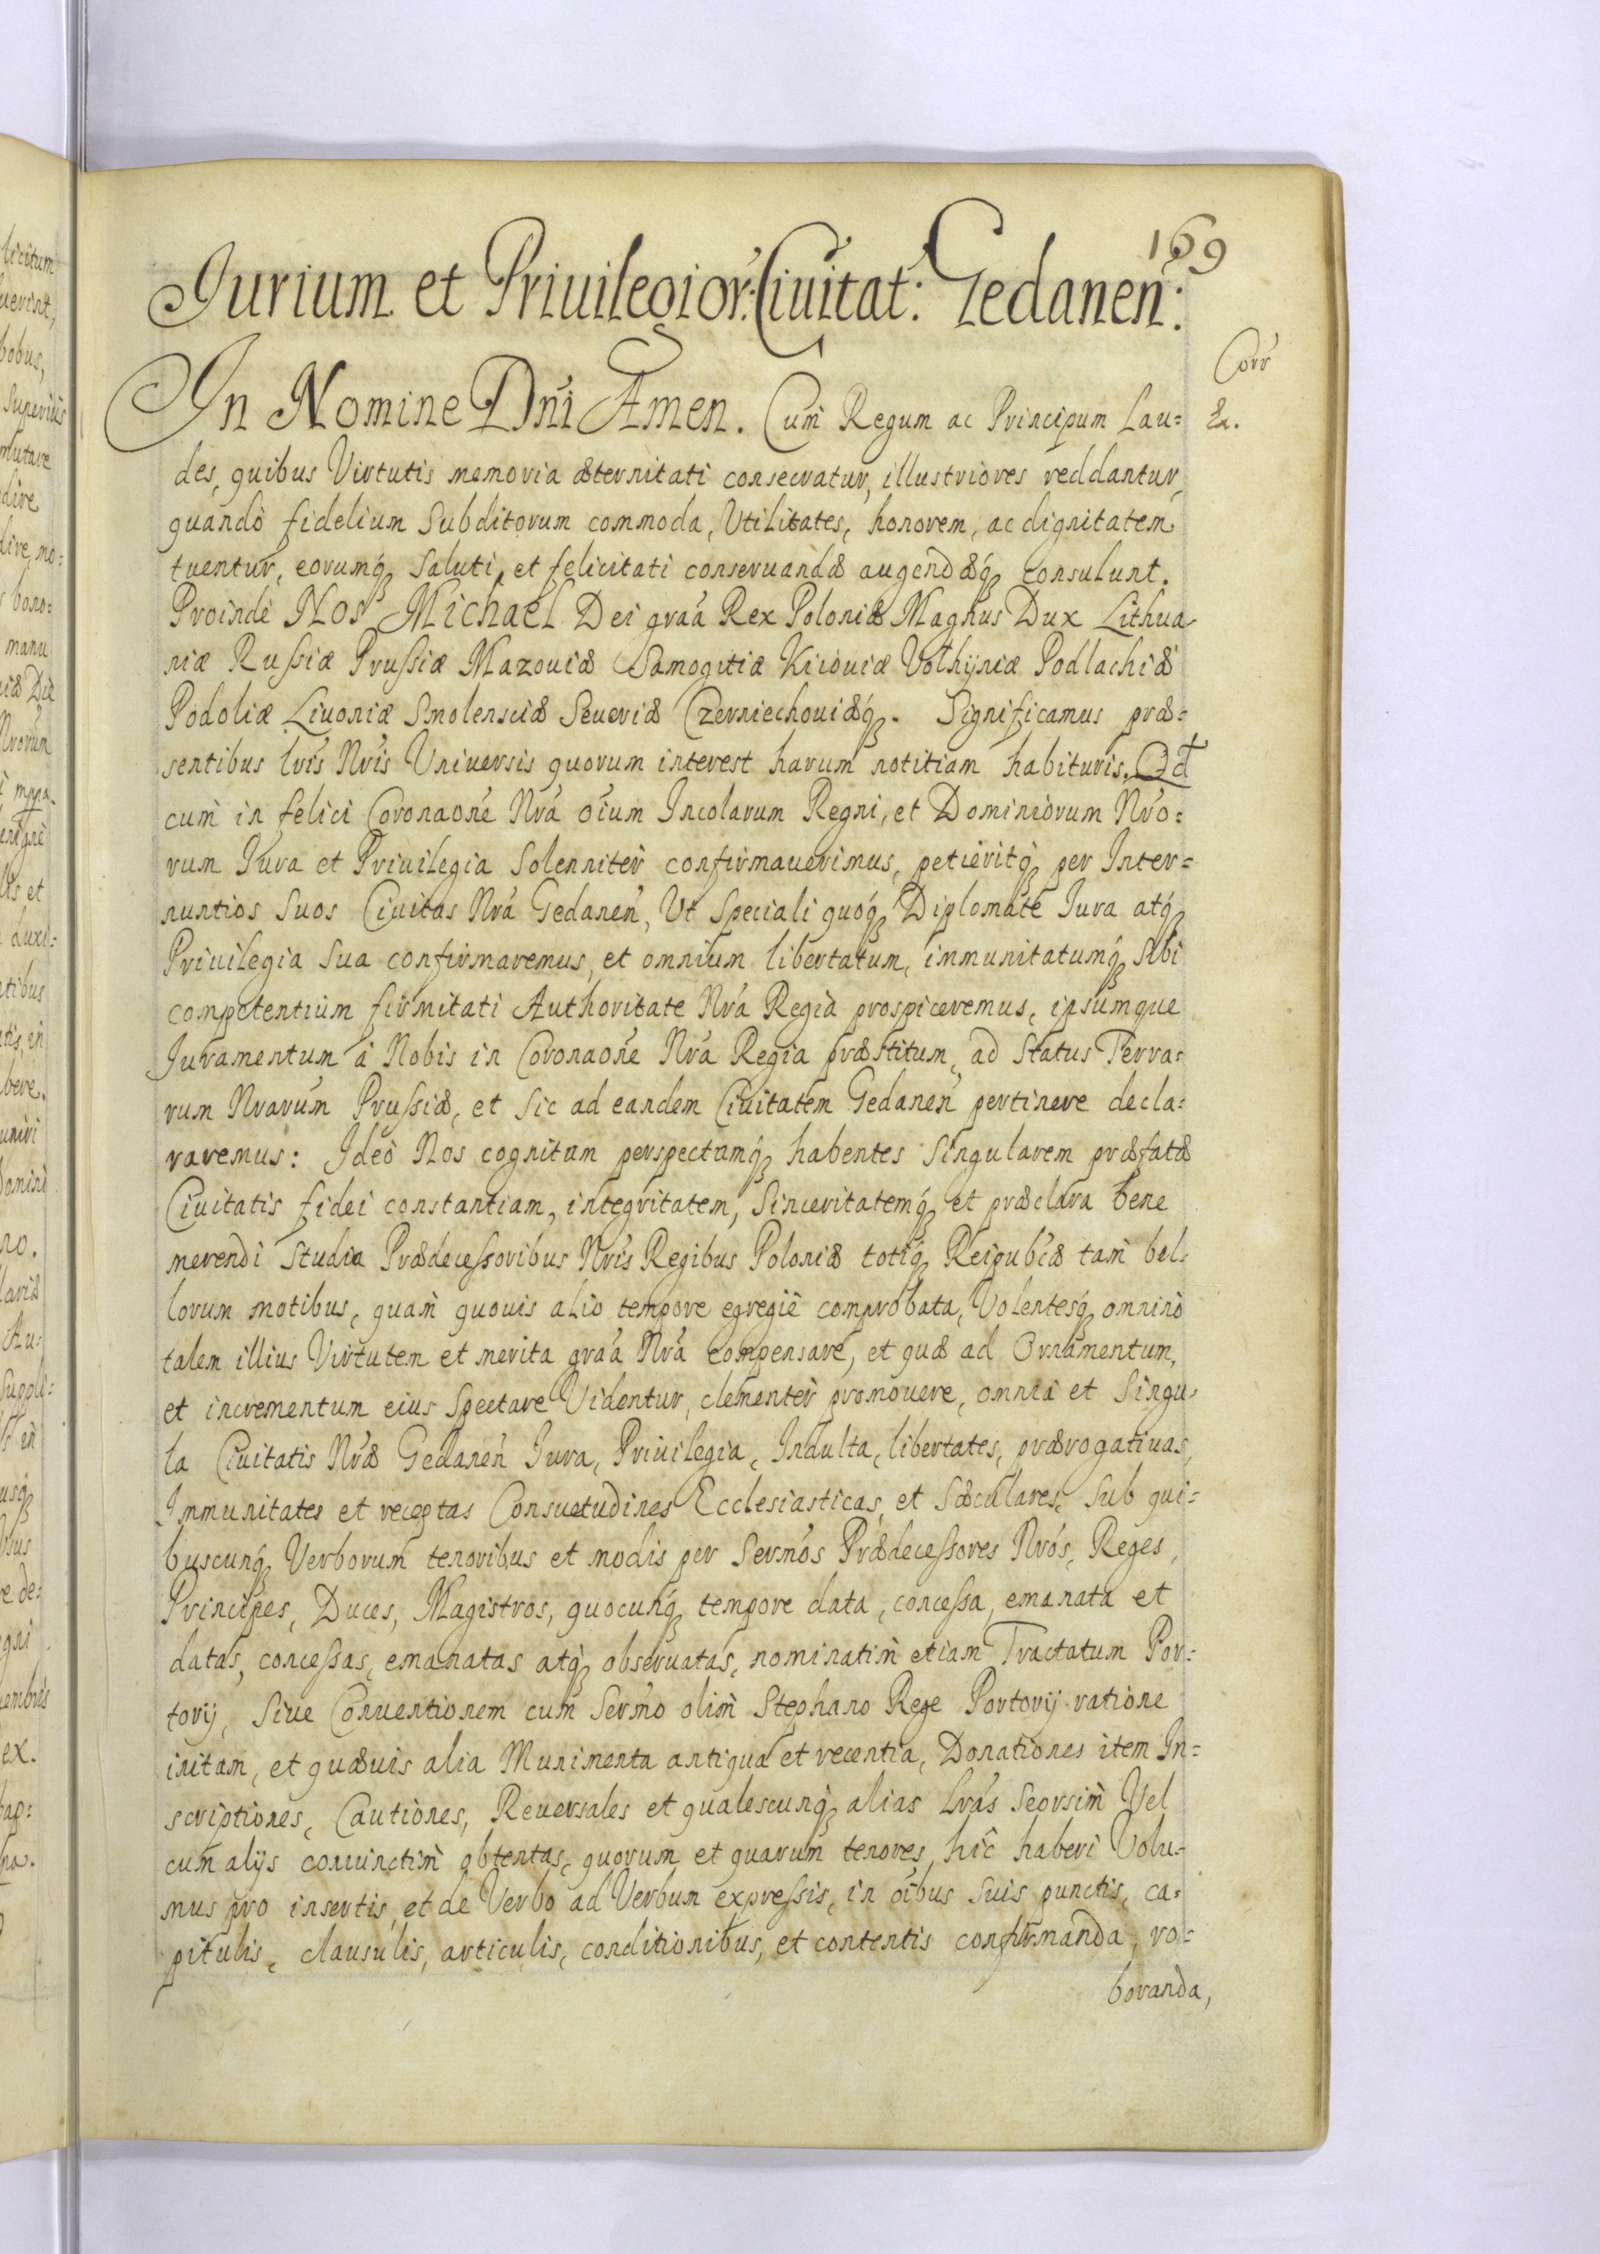 169
Iurium et Priuilegior: Ciuitat: Gedanen:
Corr
In Nomine Dni Amen. Cum Regum ac Principum Lau=
des, quibus Virtutis memoria æternitati consecratur, illustriores reddantur,
quandò fidelium Subditorum commoda, Utilitates, honorem, ac dignitatem
tuentur, eorumq, Saluti, et felicitati conseruandæ augendæq, consulunt.
Proindè Nos Michaël Dei graâ Rex Poloniæ Magnus Dux Lithua=
niæ Russiæ Prussiæ Mazouiæ Samogitiæ Kiiouiæ Volhÿniæ Podlachiæ
Podoliæ Liuoniæ Smolensciæ Seueriæ Czerniechouiæq. Significamus præ=
sentibus lris Nris Uniuersis quorum interest harum notitiam habituris. Qd
cum in felici Coronaone Nra oium Incolarum Regni, et Dominiorum Nro=
rum Iura et Priuilegia Solenniter confirmauerimus, petieritq, per Inter=
nuntios Suos Ciuitas Nra Gedanen, Ut Speciali quoq, Diplomate Iura atq,
Priuilegia Sua confirmaremus, et omnium libertatum, immunitatumq, Sibi
competentium firmitati Authoritate Nra Regia prospiceremus, ipsumque
Iuramentum à Nobis in Coronaone Nra Regia præstitum, ad Status Terra=
rum Nrarum Prussiæ, et Sic ad eandem Ciuitatem Gedanen pertinere decla=
raremus: Ideò Nos cognitam perspectamq, habentes Singularem præfatæ
Ciuitatis fidei constantiam, integritatem, Sinceritatemq, et præclara bene
merendi Studia Prædecessoribus Nris Regibus Poloniæ totiq, Reipubcæ tam bel=
lorum motibus, quam quouis alio tempore egregiè comprobata, Volentesq, omninò
talem illius Virtutem et merita graâ Nrâ compensare, et quæ ad Ornamentum,
et incrementum eius Spectare Videntur, clementer promouere, omnia et Singu=
la Ciuitatis Nræ Gedanen Iura, Priuilegia, Indulta, libertates, prærogatiuas,
Immunitates et receptas Consuetudines Ecclesiasticas, et Sæculares, Sub qui=
buscunq, Verborum tenoribus et modis per Sermos Prædecessores Nros, Reges,
Principes, Duces, Magistros, quocunq, tempore data, concessa, emanata et
datas, concessas, emanatas atq, obseruatas, nominatim etiam Tractatum Por=
torij, Siue Conuentionem cum Sermo olim Stephano Rege Portorij ratione
initam, et quæuis alia Munimenta antiqua et recentia, Donationes item In=
scriptiones, Cautiones, Reuersales et qualescunq, alias Lras Seorsim Vel
cum alijs coniunctim obtentas, quorum et quarum tenores, hîc haberi Volu=
mus pro insertis, et de Verbo ad Verbum expressis, in oibus Suis punctis, ca=
pitulis, clausulis, articulis, conditionibus, et contentis confirmanda, ro=
boranda,